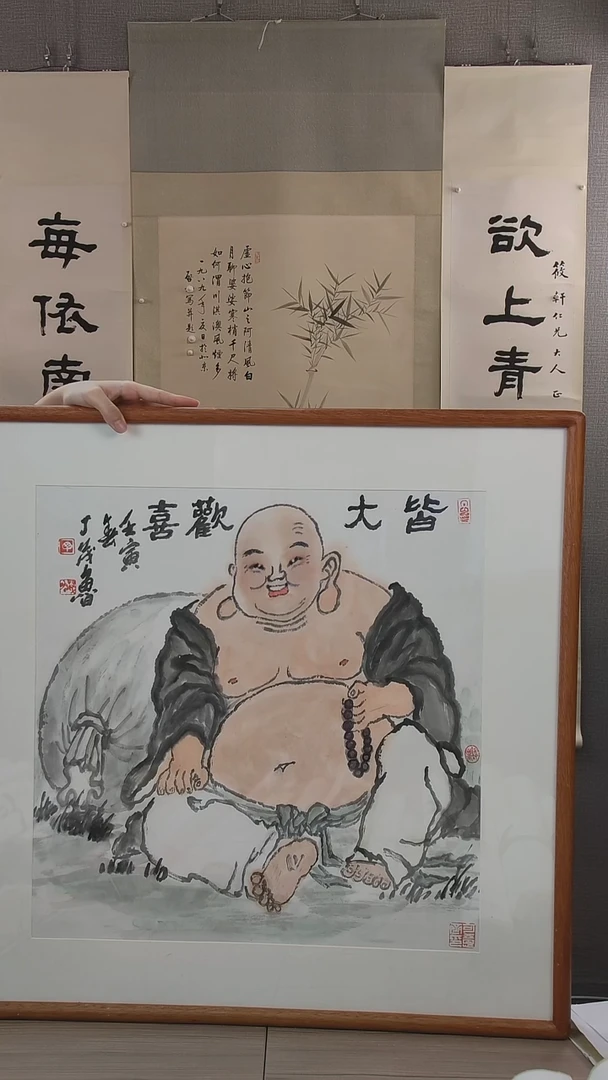 欲上青
筱軒仁兄大人正
每依南
虛心抱節山之阿清風白
月聊婆娑寒梢千尺將
如何渭川淇澳風煙多
一九八九年夏日於北京
啟功寫並題
皆大歡喜
壬寅
春
丁茂魯